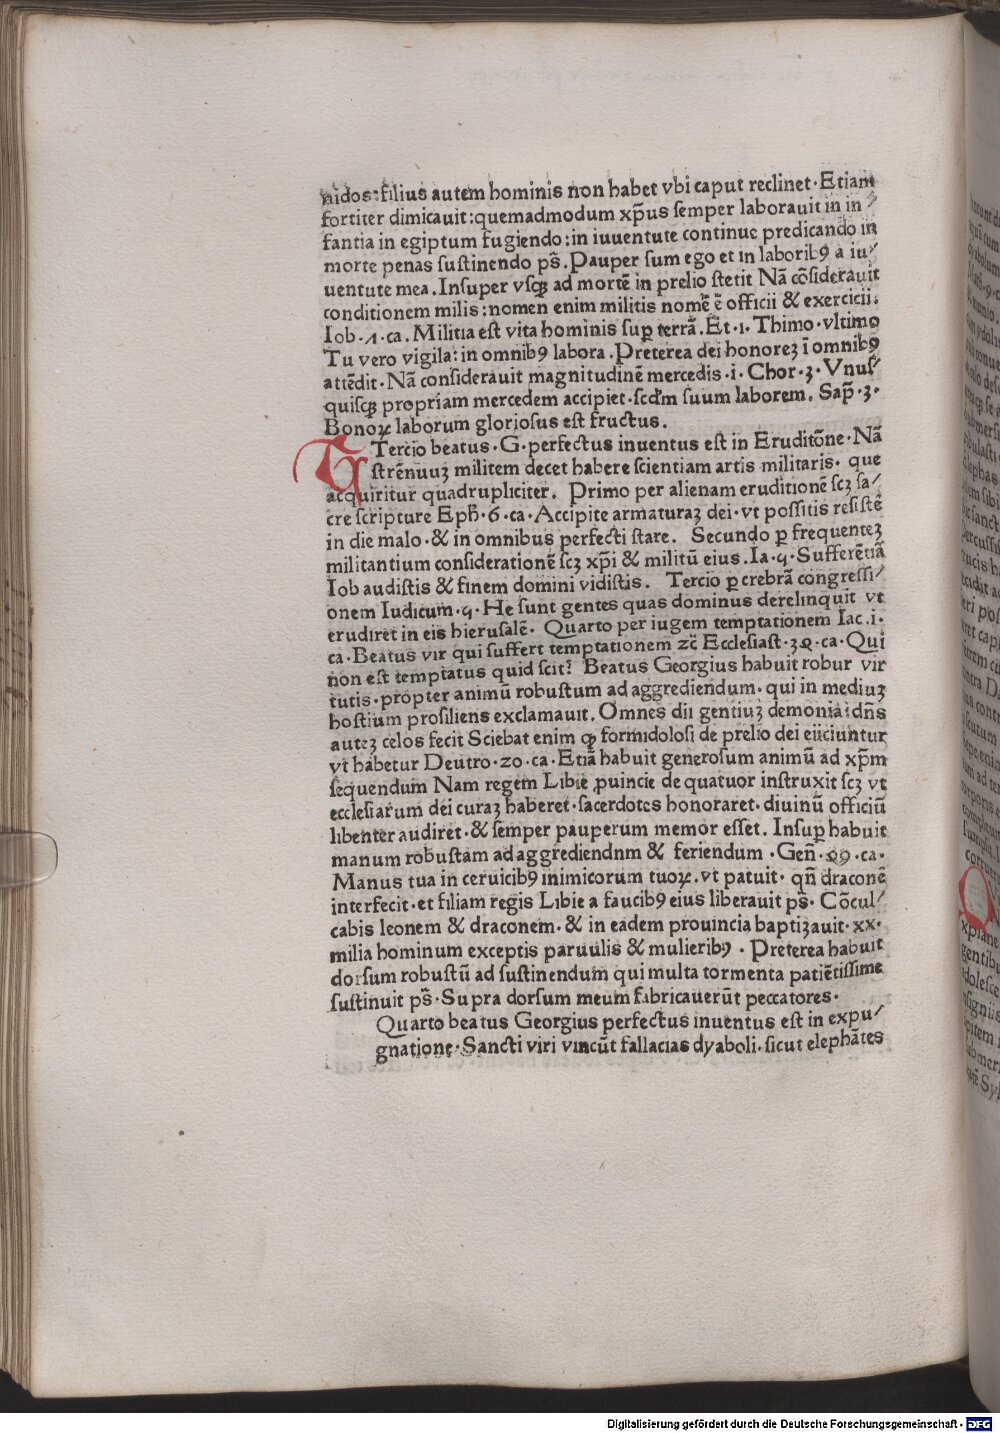 nidos:filius autem hominis non habet vbi caput reclinet·Etiam
fortiter dimicauit:quemadmodum xp̃us semper laborauit in in⸗
fantia in egiptum fugiendo:in iuuentute continue predicando in
morte penas sustinendo ps̃. Pauper sum ego et in laborib9 a iu⸗
uentute mea. Insuper vsqꝫ ad mortẽ in prelio stetit Nã cõsiderauit
conditionem milis:nomen enim militis nomẽ ẽ officii & exercicii.
Iob·𝟩·ca. Militia est vita hominis sup̱ terrã. Et·i· Thimo·vltimo
Tu vero vigila:in omnib9 labora. Preterea dei honoreꝫ ĩ omnib9
attẽdit·Nã considerauit magnitudinẽ mercedis·i·Chor·3·Vnus⸗
quisqꝫ propriam mercedem accipiet·scdm̃ suum laborem. Sap̃·3·
Bonoꝝ laborum gloriosus est fructus.
Tercio beatus·G·perfectus inuentus est in Eruditõne·Nã
strẽnuuꝫ militem decet habere scientiam artis militaris·que
acquiritur quadrupliciter. Primo per alienam eruditionẽ scꝫ sa⸗
cre scripture Eph̃·6·ca·Accipite armaturaꝫ dei·vt possitis resistẽ
in die malo·& in omnibus perfecti stare. Secundo ꝑ frequenteꝫ
militantium considerationẽ scꝫ xp̃i & militũ eius. Ia·ꝗ·Sufferẽtiã
Iob audistis & finem domini vidistis. Tercio ꝑ crebrã congressi⸗
onem Iudicum·ꝗ·He sunt gentes quas dominus derelinquit vt
erudiret in eis hierusalẽ· Quarto per iugem temptationem Iac·i·
ca·Beatus vir qui suffert temptationem zc̃ Ecclesiast·3ꝝ·ca·Qui
non est temptatus quid scit? Beatus Georgius habuit robur vir
tutis·propter animũ robustum ad aggrediendum·qui in mediuꝫ
hostium prosiliens exclamauit. Omnes dii gentiuꝫ demonia:dñs
auteꝫ celos fecit Sciebat enim qꝫ formidolosi de prelio dei eiiciuntur
vt habetur Deutro·20·ca·Etiã habuit generosum animũ ad xp̃m
sequendum Nam regem Libie ꝓuincie de quatuor instruxit scꝫ vt
ecclesiarum dei curaꝫ haberet·sacerdotes honoraret·diuinũ officiũ
libenter audiret·& semper pauperum memor esset. Insuꝑ habuit
manum robustam ad aggrediendnm & feriendum·Geñ·ꝝ9·ca·
Manus tua in ceruicib9 inimicorum tuoꝝ·vt patuit·qñ draconẽ
interfecit·et filiam regis Libie a faucib9 eius liberauit ps̃·Cõcul⸗
cabis leonem & draconem·& in eadem prouincia baptizauit·xx·
milia hominum exceptis paruulis & mulierib9·Preterea habuit
dorsum robustũ ad sustinendum qui multa tormenta patiẽtissime
sustinuit ps̃·Supra dorsum meum fabricauerũt peccatores·
Quarto beatus Georgius perfectus inuentus est in expu⸗
gnatione·Sancti viri vincũt fallacias dyaboli·sicut elephãtes
Digitalisierung gefördert durch die Deutsche Forschungsgemeinschaft - DFG